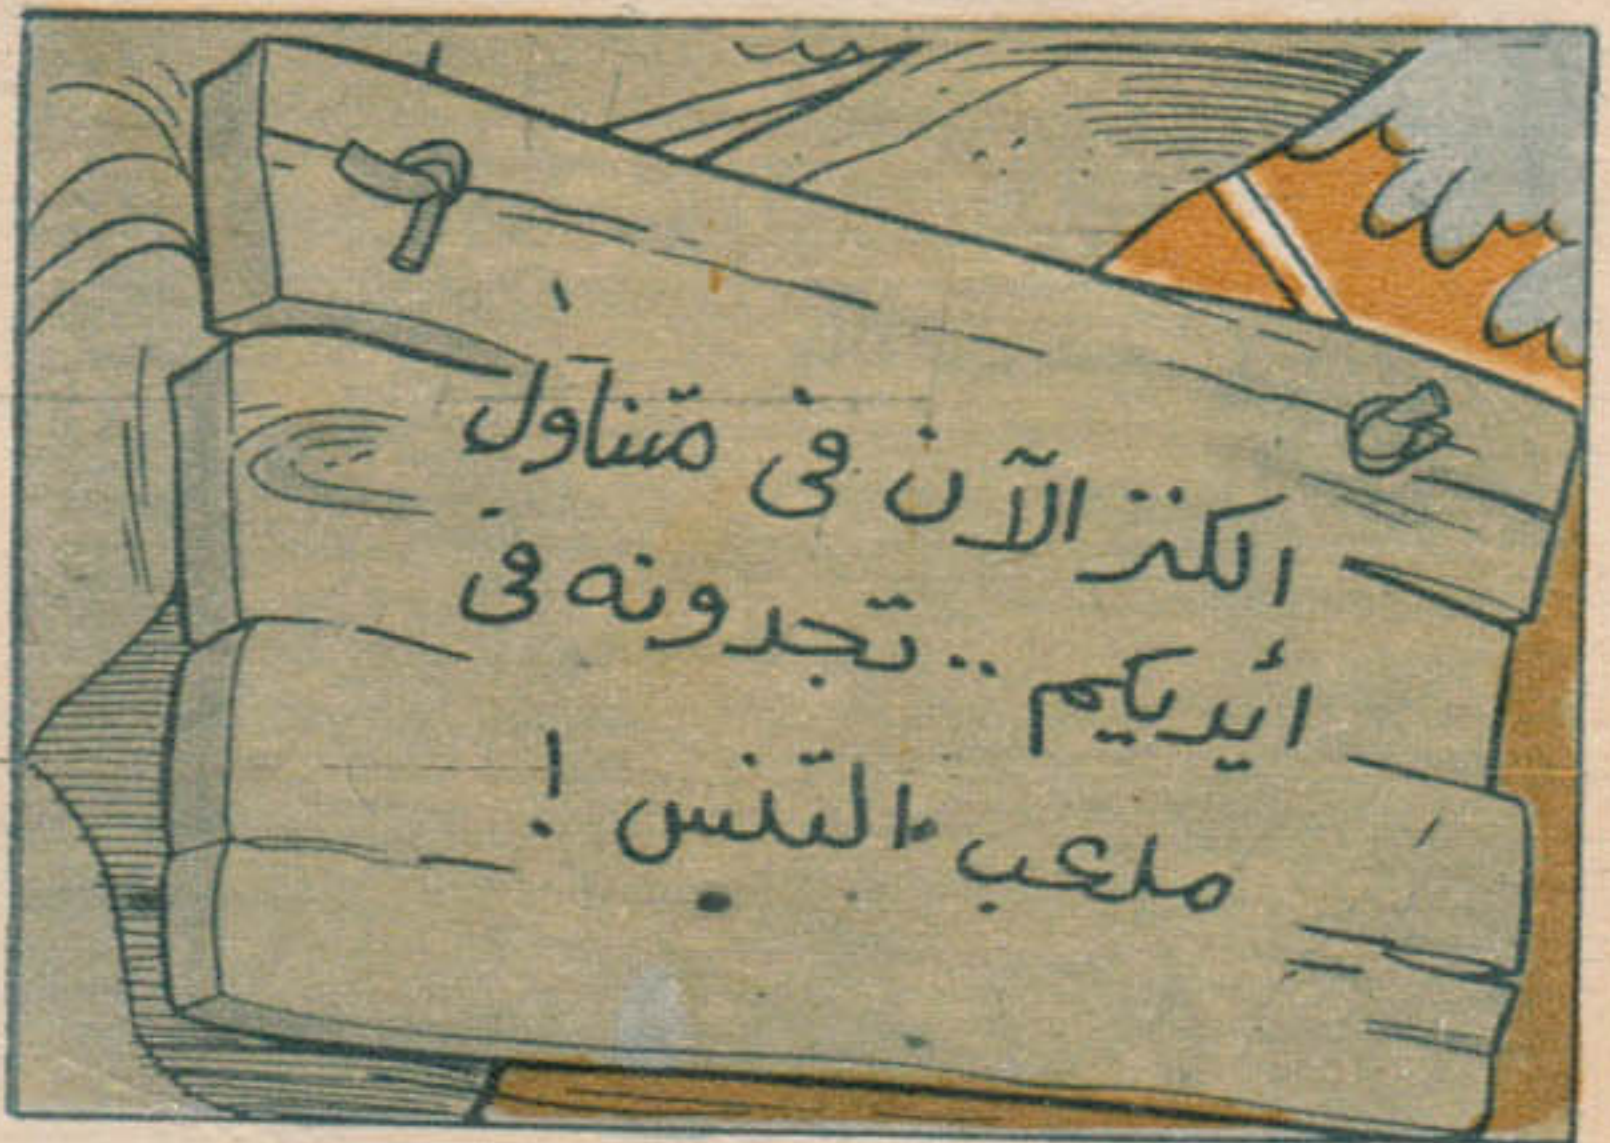 الكنز الآن في متناول
أيديكم .. تجدونه في
ملعب التنس !